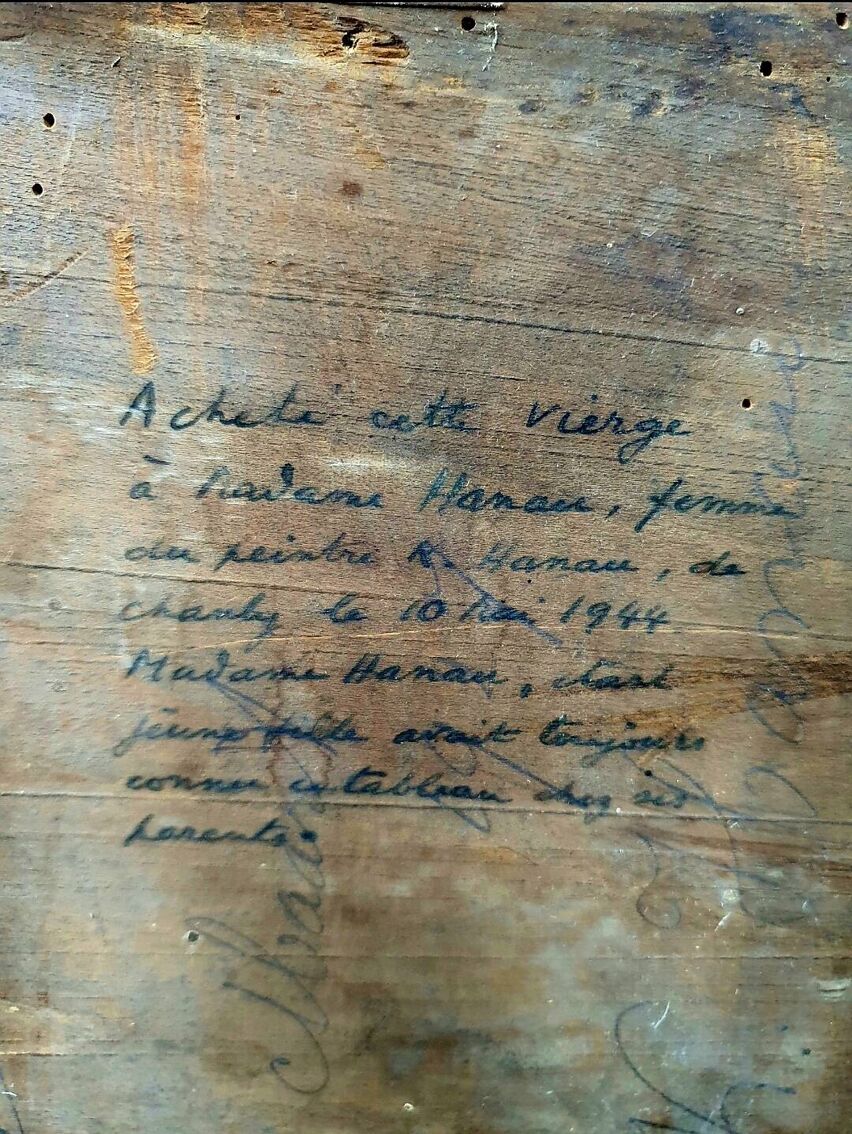 Acheté cette Vierge
à Madame Hanau, femme
du peintre R. Hanau, de
chauby le 10 Mai 1944
Madame Hanau, étant
jeune fille avait toujours
connu ce tableau chez ses
parents.